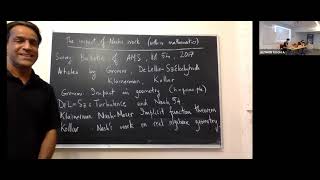 The impact of Nash's work (within mathematics)
Survey Bulletin of AMS, Vol 54, 2017
Articles by Gromov, De Lellis-Székelyhidi
Klainerman, Kollar
Gromov: Impact in geometry (h-principle)
DeL-Sz: Turbulence and Nash 54
Klainerman Nash-Moser Implicit function theorem
Kollar - Nash's work on real algebraic geometry